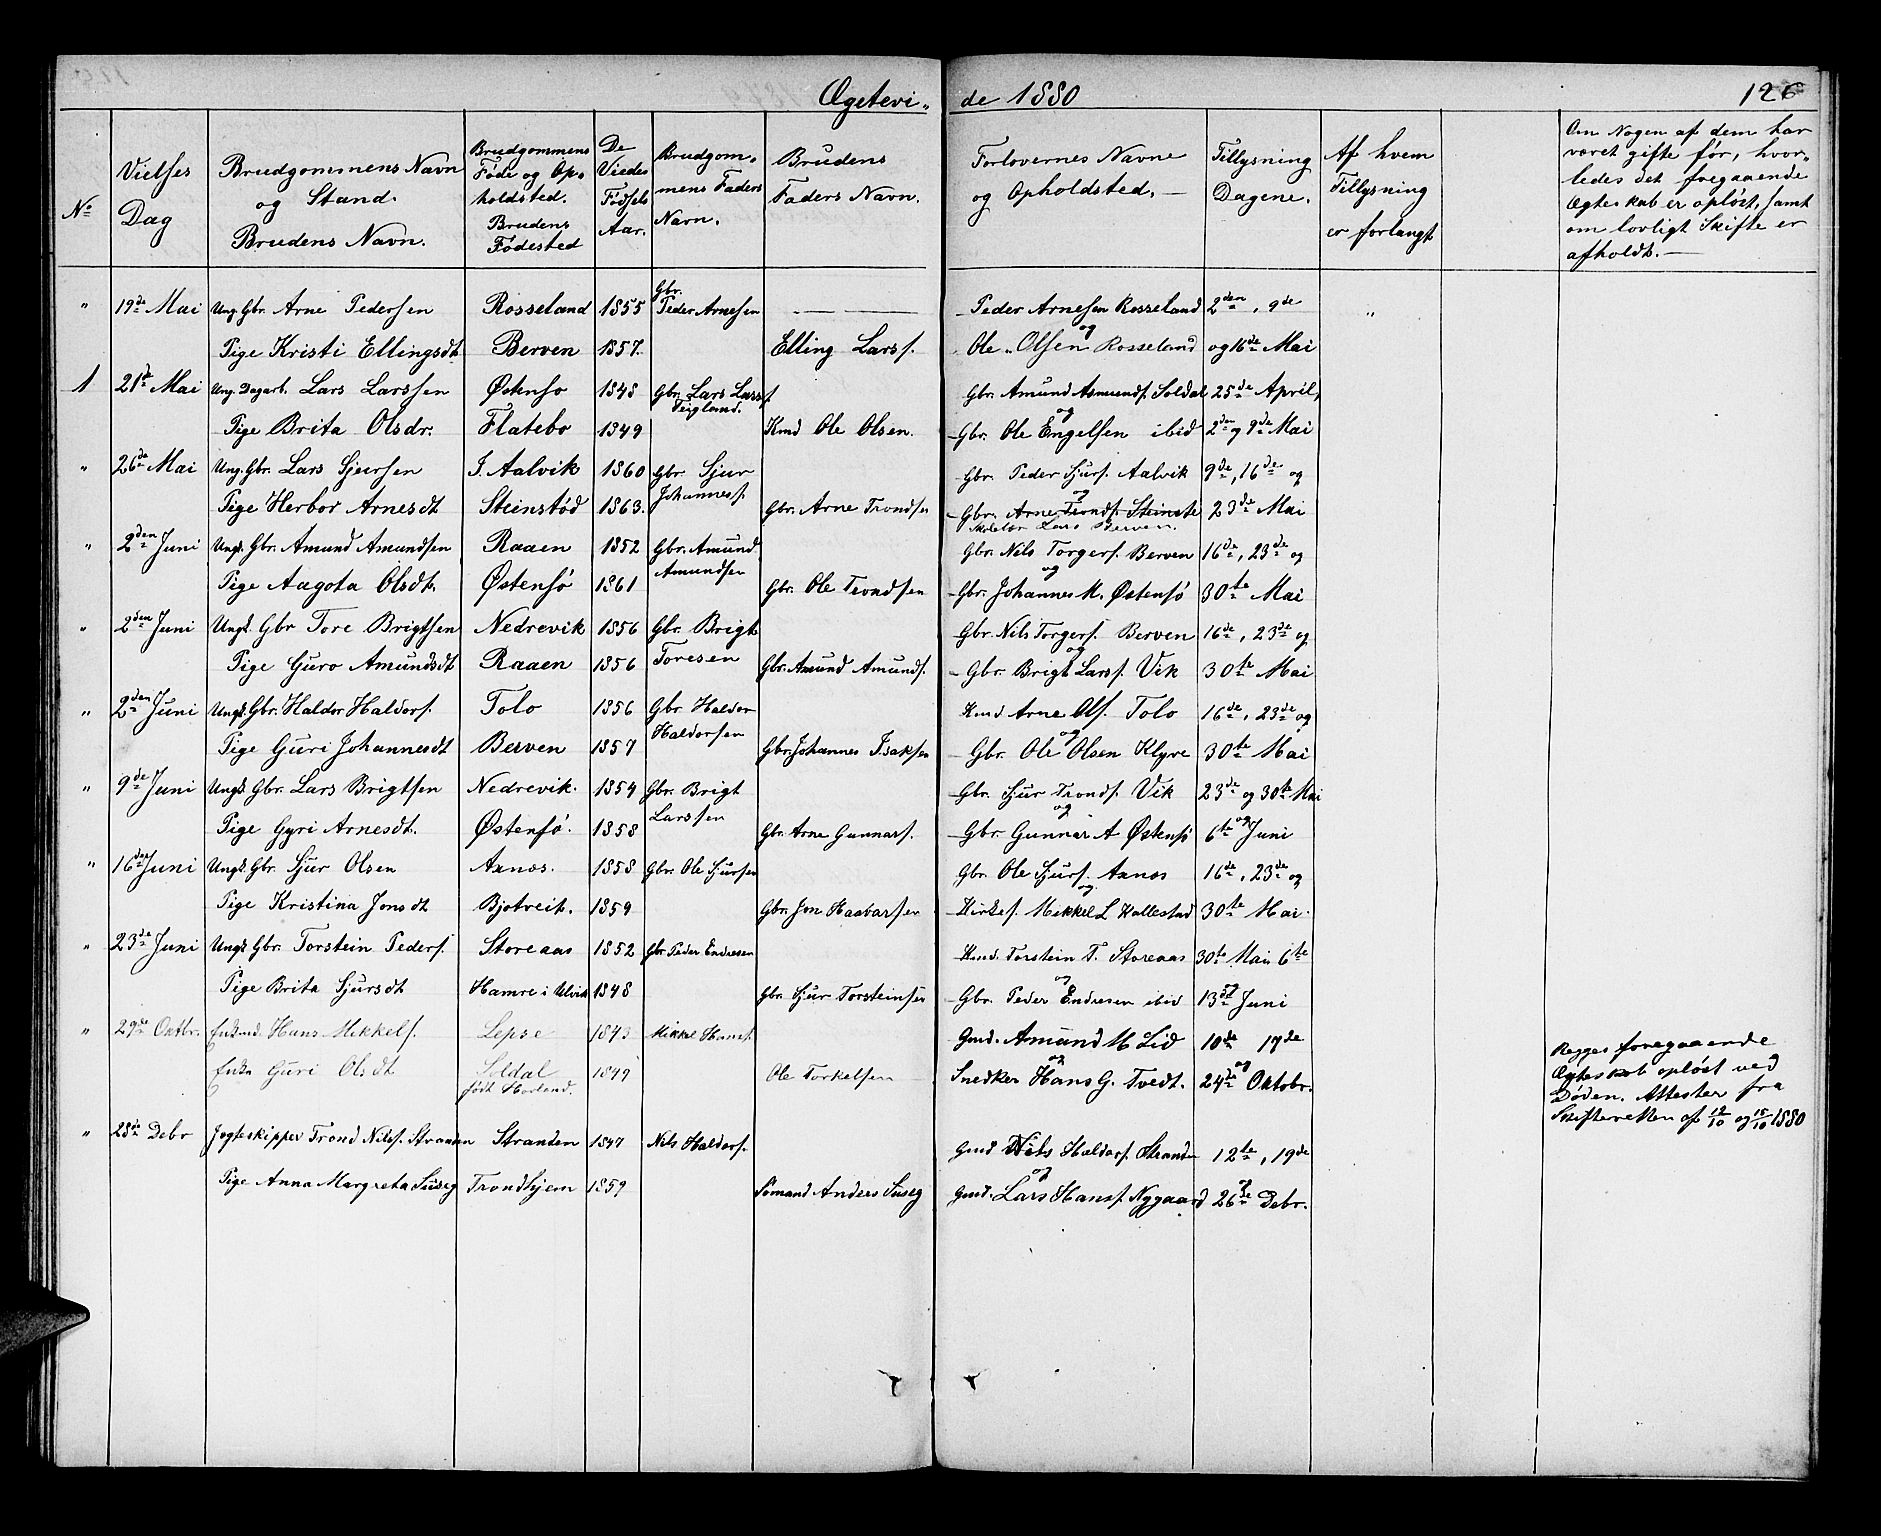 Ægtevi„ de 1880 126
No | Vielses Dag | Brudgommens Navn og Stand. Brudens Navn. | Brudgommens Føde og Opholdsted. Brudens Fødested | De Viedes Fødsels Aar. | Brudgommens Faders Navn. | Brudens Faders Navn. | Forlovernes Navne og Opholdsted. | Tillysning Dagene. | Af hvem Tillysning er forlangt | Om Nogen af dem har været gifte før, hvorledes det foregaaende Ægteskab er opløst, samt om lovligt Skifte er afholdt.
" | 19de Mai | Ung. Gbr. Arne Pedersen | Rosseland | 1855 | Gbr. Peder Arnesen | — — | Peder Arnesen Rosseland | 2den, 9de | "
Pige Kristi Ellingsdt. | Berven | 1857. | Elling Larss. | og Ole Olsen Rosseland | og 16de Mai
1 | 21de Mai | Ung. Dagarb. Lars Larssen | Østensø | 1848 | Gbr. Lars Larss. Teigland. | Gbr. Amund Asmunds. Soldal | 25de April,
Pige Brita Olsdr. | Flatebø | 1849 | Kmd Ole Olsen. | og Gbr. Ole Engelsen ibid | 2den og 9de Mai
" | 26de Mai | Ung. Gbr. Lars Sjursen | I. Aalvik | 1860 | Gbr Sjur Johanness. | Gbr. Peder Sjurs. Aalvik | 9de, 16de og
Pige Herbor Arnesdt | Steinstød | 1863. | Gbr. Arne Trondsen | og Gbr. Arne Tronds. Steinstø | 23de Mai
Skolelær Lars Berven.
" | 2den Juni | Ungk. Gbr. Amund Amundsen | Raaen | 1852 | Gbr. Amund Amundsen | Gbr. Nils Torgers. Berven | 16de, 23de og
Pige Aagota Olsdt. | Østensø | 1861 | Gbr. Ole Trondsen | og Gbr. Johannes M. Østensø | 30te Mai
" | 2den Juni | Ungk. Gbr Tore Brigtsen | Nedrevik | 1856 | Gbr. Brigt Toresen | Gbr. Nils Torgers. Berven | 16de, 23de og
Pige Guro Amundsdt | Raaen | 1856 | Gbr. Amund Amunds. | og Gbr. Brigt Larss. Vik | 30te Mai
" | 2den Juni | Ungk. Gbr. Haldor Haldors. | Tolo | 1856 | Gbr Haldor Haldorsen | Kmd Arne Ols. Tolo | 16de, 23de og
Pige Guri Johannesdt | Berven | 1857 | Gbr. Johannes Isaksen | og Gbr. Ole Olsen Klyve | 30te Mai
" | 9de Juni | Ungk. Gbr. Lars Brigtsen | Nedrevik. | 1854 | Gbr. Brigt Larssen | Gbr. Sjur Tronds. Vik | 23de og 30te Mai
Pige Gyri Arnesdt. | Østensø. | 1858 | Gbr. Arne Gunnars. | og Gbr. Gunnar A Østensø | og 6te Juni
" | 16de Juni | Ungk. Gbr. Sjur Olsen | Axnos. | 1858 | Gbr. Ole Sjursen | Gbr. Ole Sjurs. Axnos | 16de, 23de og
Pige Kristina Jonsdt | Bjotveit. | 1859 | Gbr. Jon Haavarsen | og Kirkes. Mikkel L Kallestad | 30te Mai.
" | 23de Juni | Ungk Gbr. Torstein Peders. | Storeaas | 1852 | Gbr. Peder Endresen | Kmd. Torstein T. Storeaas | 30te Mai 6te
Pige Brita Sjursdt | Hamre i Ulvik | 1848 | Gbr. Sjur Torsteinsen | og Gbr. Peder Endresen ibid | og 13de Juni
" | 29de Oktbr. | Enkmd. Hans Mikkels. | Lepsø | 1843 | Mikkel Hanss. | Gmd. Amund M Lid | 10de 17de | Begges foregaaende
Enka Guri Olsdt | Soldal født Hovland. | 1849 | Ole Torkelsen | og Snedker Hans G. Tvedt. | og 24de Oktobr. | Ægteskab opløst ved
Døden. Attester fra
Skifteretten af 12/10 og 15/10 1880
" | 28de Debr | Jagteskipper Trond Nilss. Stranden | Stranden | 1847 | Nils Haldors. | Gmd Nils Haldors. Stranden | 12te, 19de
Pige Anna Margreta Suseg | Trondhjem | 1859 | Sømand Anders Suseg | og Gmd. Lars Hanss. Nygaard | og 26de Debr.